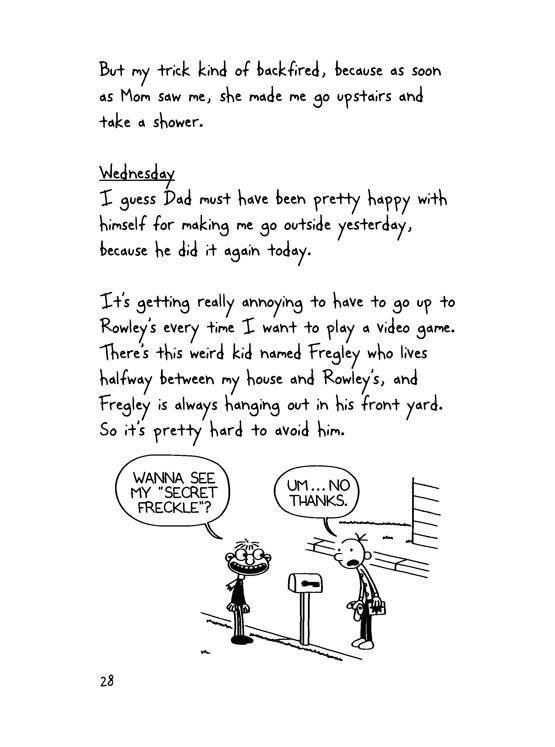 But my trick kind of backfired, because as soon
as Mom saw me, she made me go upstairs and
take a shower.
Wednesday
I guess Dad must have been pretty happy with
himself for making me go outside yesterday,
because he did it again today.
It's getting really annoying to have to go up to
Rowley's every time I want to play a video game.
There's this weird kid named Fregley who lives
halfway between my house and Rowley's, and
Fregley is always hanging out in his front yard.
So it's pretty hard to avoid him.
WANNA SEE
MY "SECRET
FRECKLE"?
UM...NO
THANKS.
28